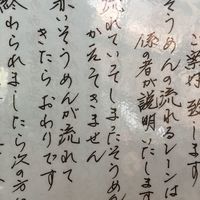 ご案内致し
そうめんの流れるレーンは
係の者が説明いたします
流れていってしまったそうめん
かえってきません
赤いそうめんが流れて
きたらおわりです
終わられましたら次の方に